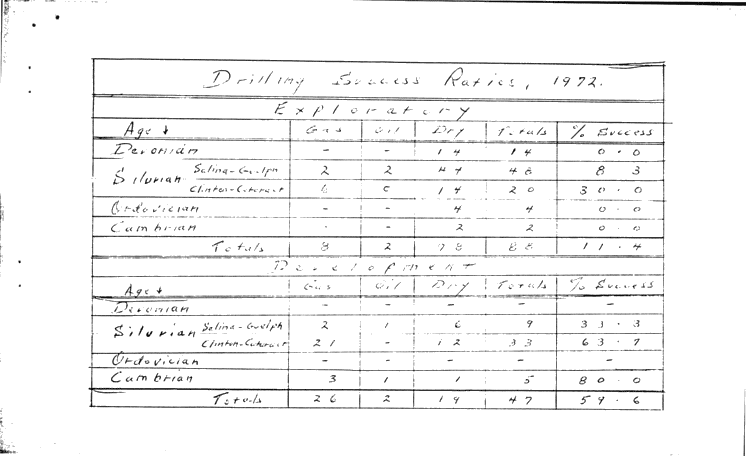 Drilling Success Ratios, 1972.
Exploratory
Age ↓ Gas Oil Dry Totals % Success
Devonian - - 14 14 0.0
Silurian Salina-Guelph 2 2 44 48 8 3
Clinton-Cataract 6 14 20 30.0
Ordovician - - 4 4 0.0
Cambrian - - 2 2 0.0
Totals 8 2 78 88 11.4
Development
Age ↓ Gas Oil Dry Totals % Success
Devonian - - - - -
Silurian Salina-Guelph 2 1 6 9 33.3
Clinton-Cataract 21 - 12 33 63.7
Ordovician - - - - -
Cambrian 3 1 1 5 80.0
Totals 26 2 19 47 59.6